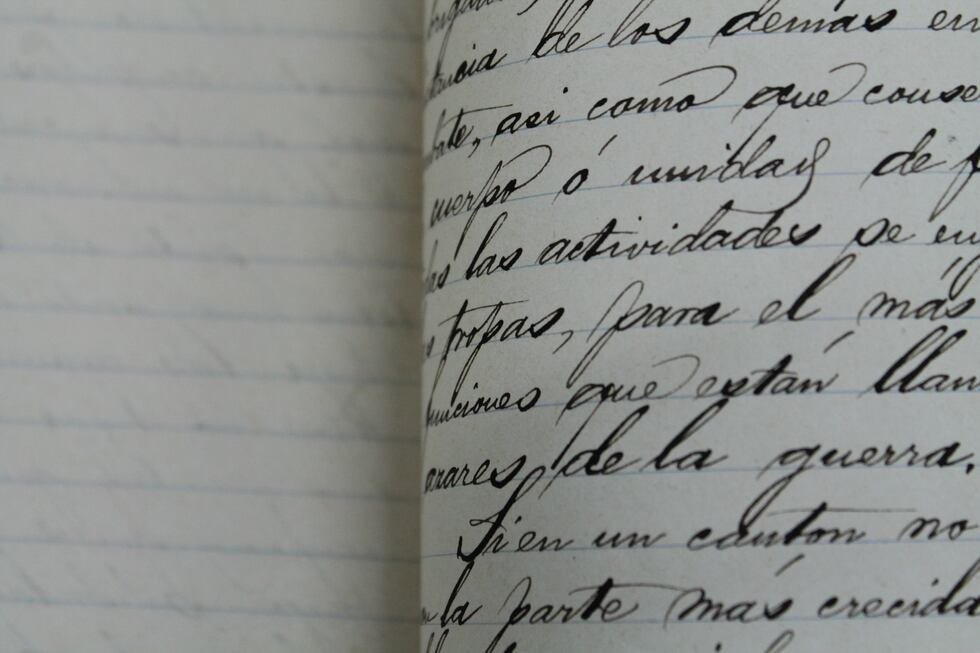 de los demás en
así como que conse
cuerpo ó unidad de f
las actividades se en
tropas, para el más
que están llam
azares de la guerra.
Si en un canton no
la parte más crecida